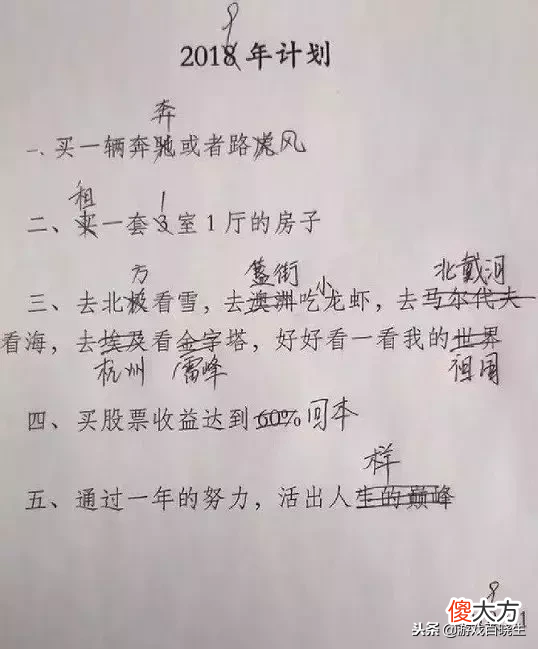 9
2018年计划
奔
一、买一辆奔驰或者路虎风
租 1
二、买一套3室1厅的房子
方 簋街 小 北戴河
三、去北极看雪，去澳洲吃龙虾，去马尔代夫
看海，去埃及看金字塔，好好看一看我的世界
杭州 雷峰 祖国
四、买股票收益达到60%回本
样
五、通过一年的努力，活出人生的巅峰
9
傻大方
头条@游戏百晓生